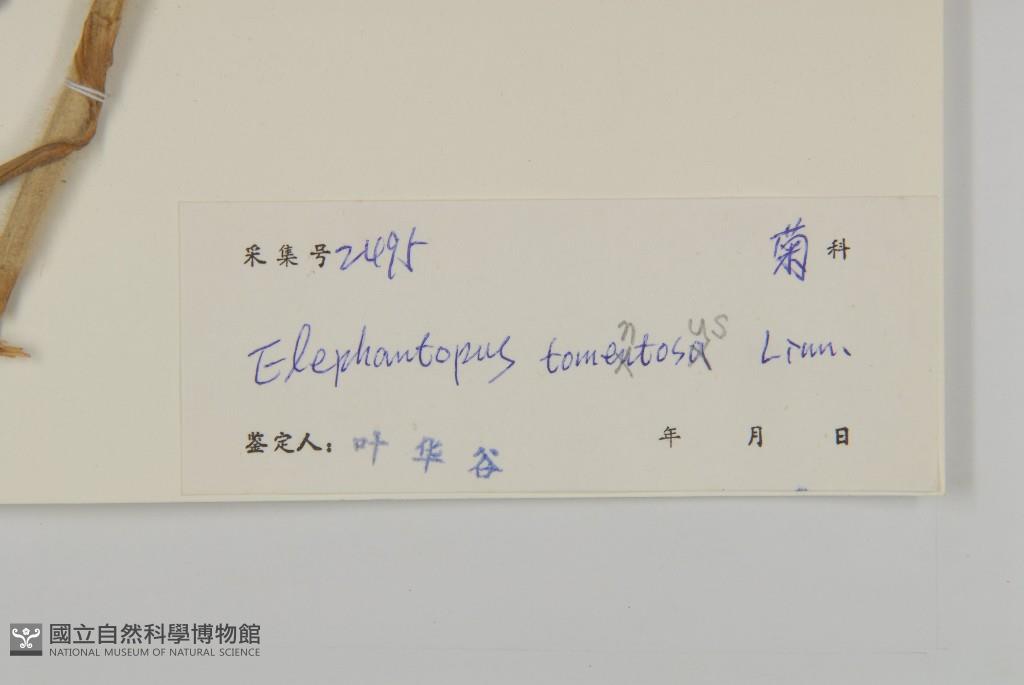 采集号 2495 菊 科
Elephantopus tomentosus Linn.
鉴定人: 叶华谷 年 月 日
國立自然科學博物館
NATIONAL MUSEUM OF NATURAL SCIENCE